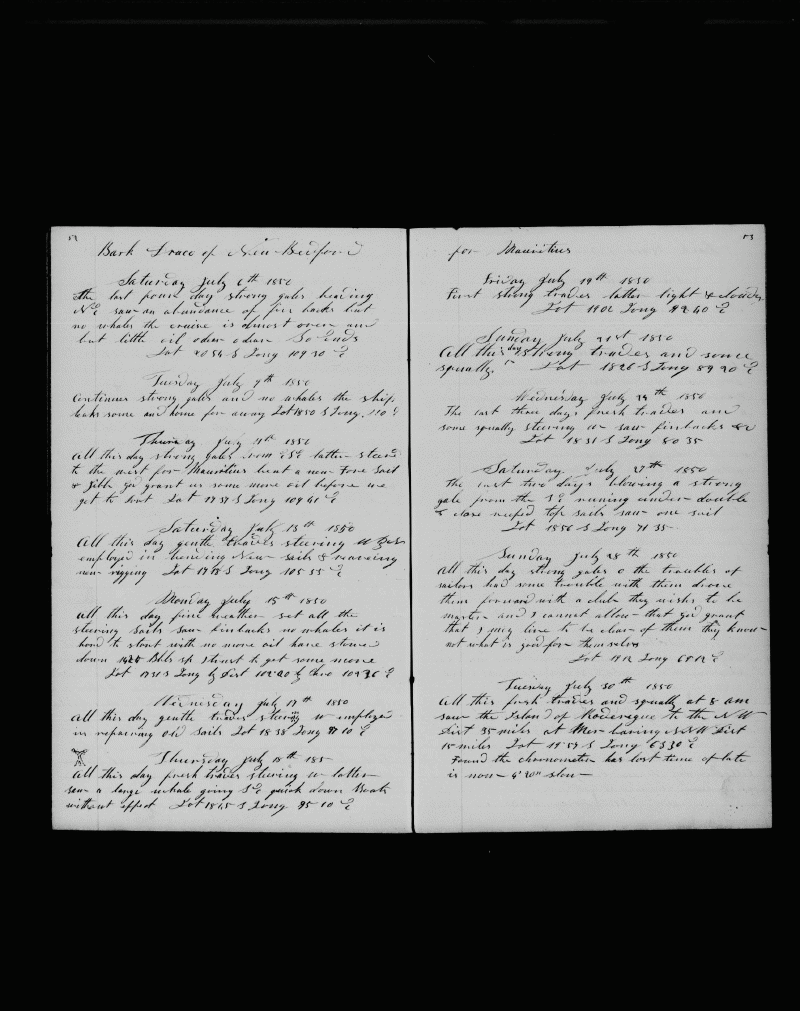 Bark Drace of New Bedford
Saturday July 6th 1850
The last four day strong gales heading
NE saw an abundance of fin backs but
no whales the cruise is almost over and
but little oil odear odear So Ends
Lat 20 54 S Long 109 20 E
Tuesday July 9th 1850
Continues strong gales and no whales the ship
leaks some and home far away Lat 1850 S Long 110 E
Thursday July 11th 1850
All this day strong gales from ESE latter steerd
to the west for Mauritius bent a new Fore Sail
& Jibb god grant us some more oil before we
get to Port Lat 17 57 S Long 109 41 E
Saturday July 13th 1850
All this day gentle trades steering W by S
employed in bending New sails & reaveing
new rigging Lat 1778 S Long 105 55 E
Monday July 15th 1850
All this day fine weather set all the
steering Sails saw finbacks no whales it is
hard to start with no more oil have stowed
down 1425 Bbls sp I trust to get some more
Lat 1751 S Long by Dist 102 20 by chro 102 26 E
Wednesday July 17th 1850
All this day gentle trades steering W employed
in repairing old sails Lat 18 38 Long 97 10 E
Thursday July 18th 185
All this day fresh trades steering W latter
saw a large whale going SE quick down Boats
without effect Lat 1845 S Long 95 10 E
53
for Mauritius
Friday July 19th 1850
First strong trades latter light & cloudy
Lat 1902 Long 92 40 E
Sunday July 21st 1850
All this day strong trades and some
squally Lat 1826 S Long 89 20 E
Wednesday July 24th 1850
The last three days fresh trades and
some squally steering W saw finbacks &c
Lat 18 31 S Long 80 35
Saturday July 27th 1850
The last two days blowing a strong
gale from the SE running under double
& close reefed top sails saw one sail
Lat 1856 S Long 71 35
Sunday July 28th 1850
All this day strong gales o the troubles of
sailors had some trouble with them drove
them forward with a club they wishes to be
master and I cannot allow that god grant
that I may live to be clear of them they know
not what is good for themselves
Lat 1912 Long 6812 E
Tuesday July 30th 1850
All this fresh trades and squally at 8 am
saw the Island of Roderegue to the NW
Dist 35 miles at Mer baring NNW Dist
15 miles Lat 19 59 S Long 63 30 E
Found the chronometer has lost time of late
is now 4' 20" slow